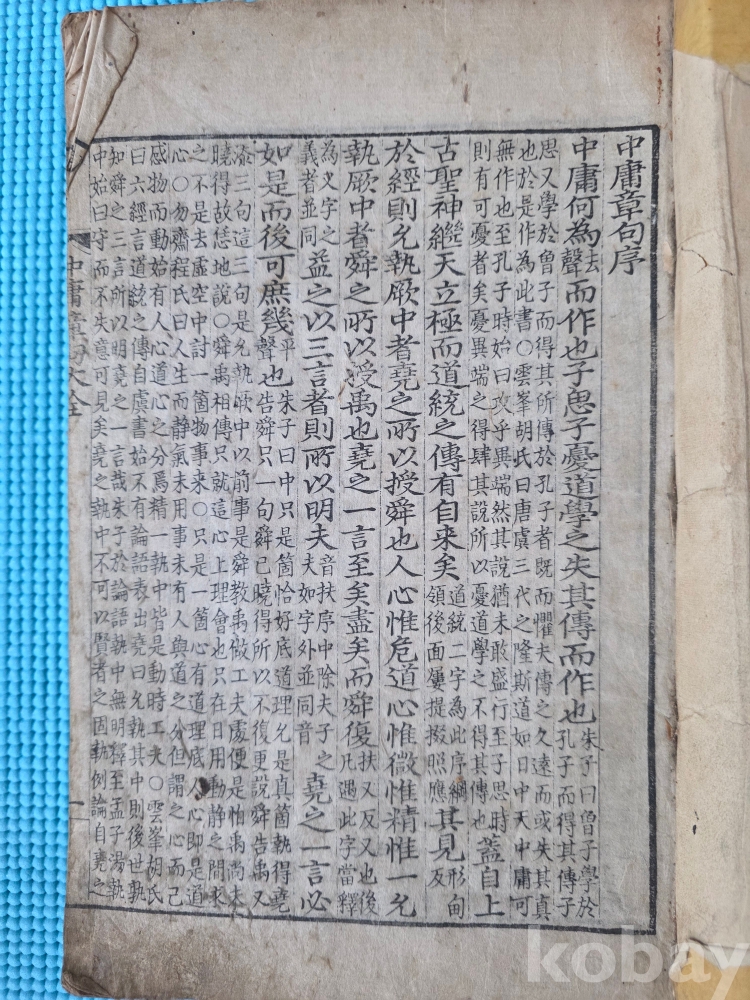 中庸章句序
中庸何為去聲而作也子思子憂道學之失其傳而作也朱子曰曾子學於孔子而得其傳子
思又學於曾子而得其所傳於孔子者既而懼夫傳之久遠而或失其真
也於是作為此書○雲峯胡氏曰唐虞三代之隆斯道如日中天中庸可
無作也至孔子時始曰攻乎異端然其說猶未敢盛行至子思時
則有可憂者矣憂異端之得肆其說所以憂道學之不得其傳也盖自上
古聖神繼天立極而道統之傳有自来矣道統二字為此序綱領後面屢提掇照應其見形甸反
於經則允執厥中者堯之所以授舜也人心惟危道心惟微惟精惟一允
執厥中者舜之所以授禹也堯之一言至矣盡矣而舜復扶又反又也後凡遇此字當釋
為又字之義者並同益之以三言者則所以明夫音扶序中除夫子之夫如字外並同音堯之一言必
如是而後可庶幾平聲也朱子曰中只是箇恰好底道理允是真箇執得堯告舜只一句舜已曉得所以不復更說舜告禹又
添三句這三句是允執厥中以前事是舜教禹做工夫處便是怕禹尚未
曉得故恁地說○舜禹相傳只就這心上理會也只在日用動静之間求
之不是去虛空中討一箇物事来○只是一箇心有道理底人心即是道
心○勿齋程氏曰人生而静氣未用事未有人與道之分但謂之心而已
感物而動始有人心道心之分焉精一執中皆是動時工夫○雲峯胡氏
曰六經言道統之傳自虞書始不有論語表出堯曰允執其中則後世孰
知舜之三言所以明堯之一言哉朱子於論語執中無明釋至孟子湯執
中始曰守而不失意可見矣堯之執中不可以賢者之固執例論自堯之
中庸章句大全
一
kobay